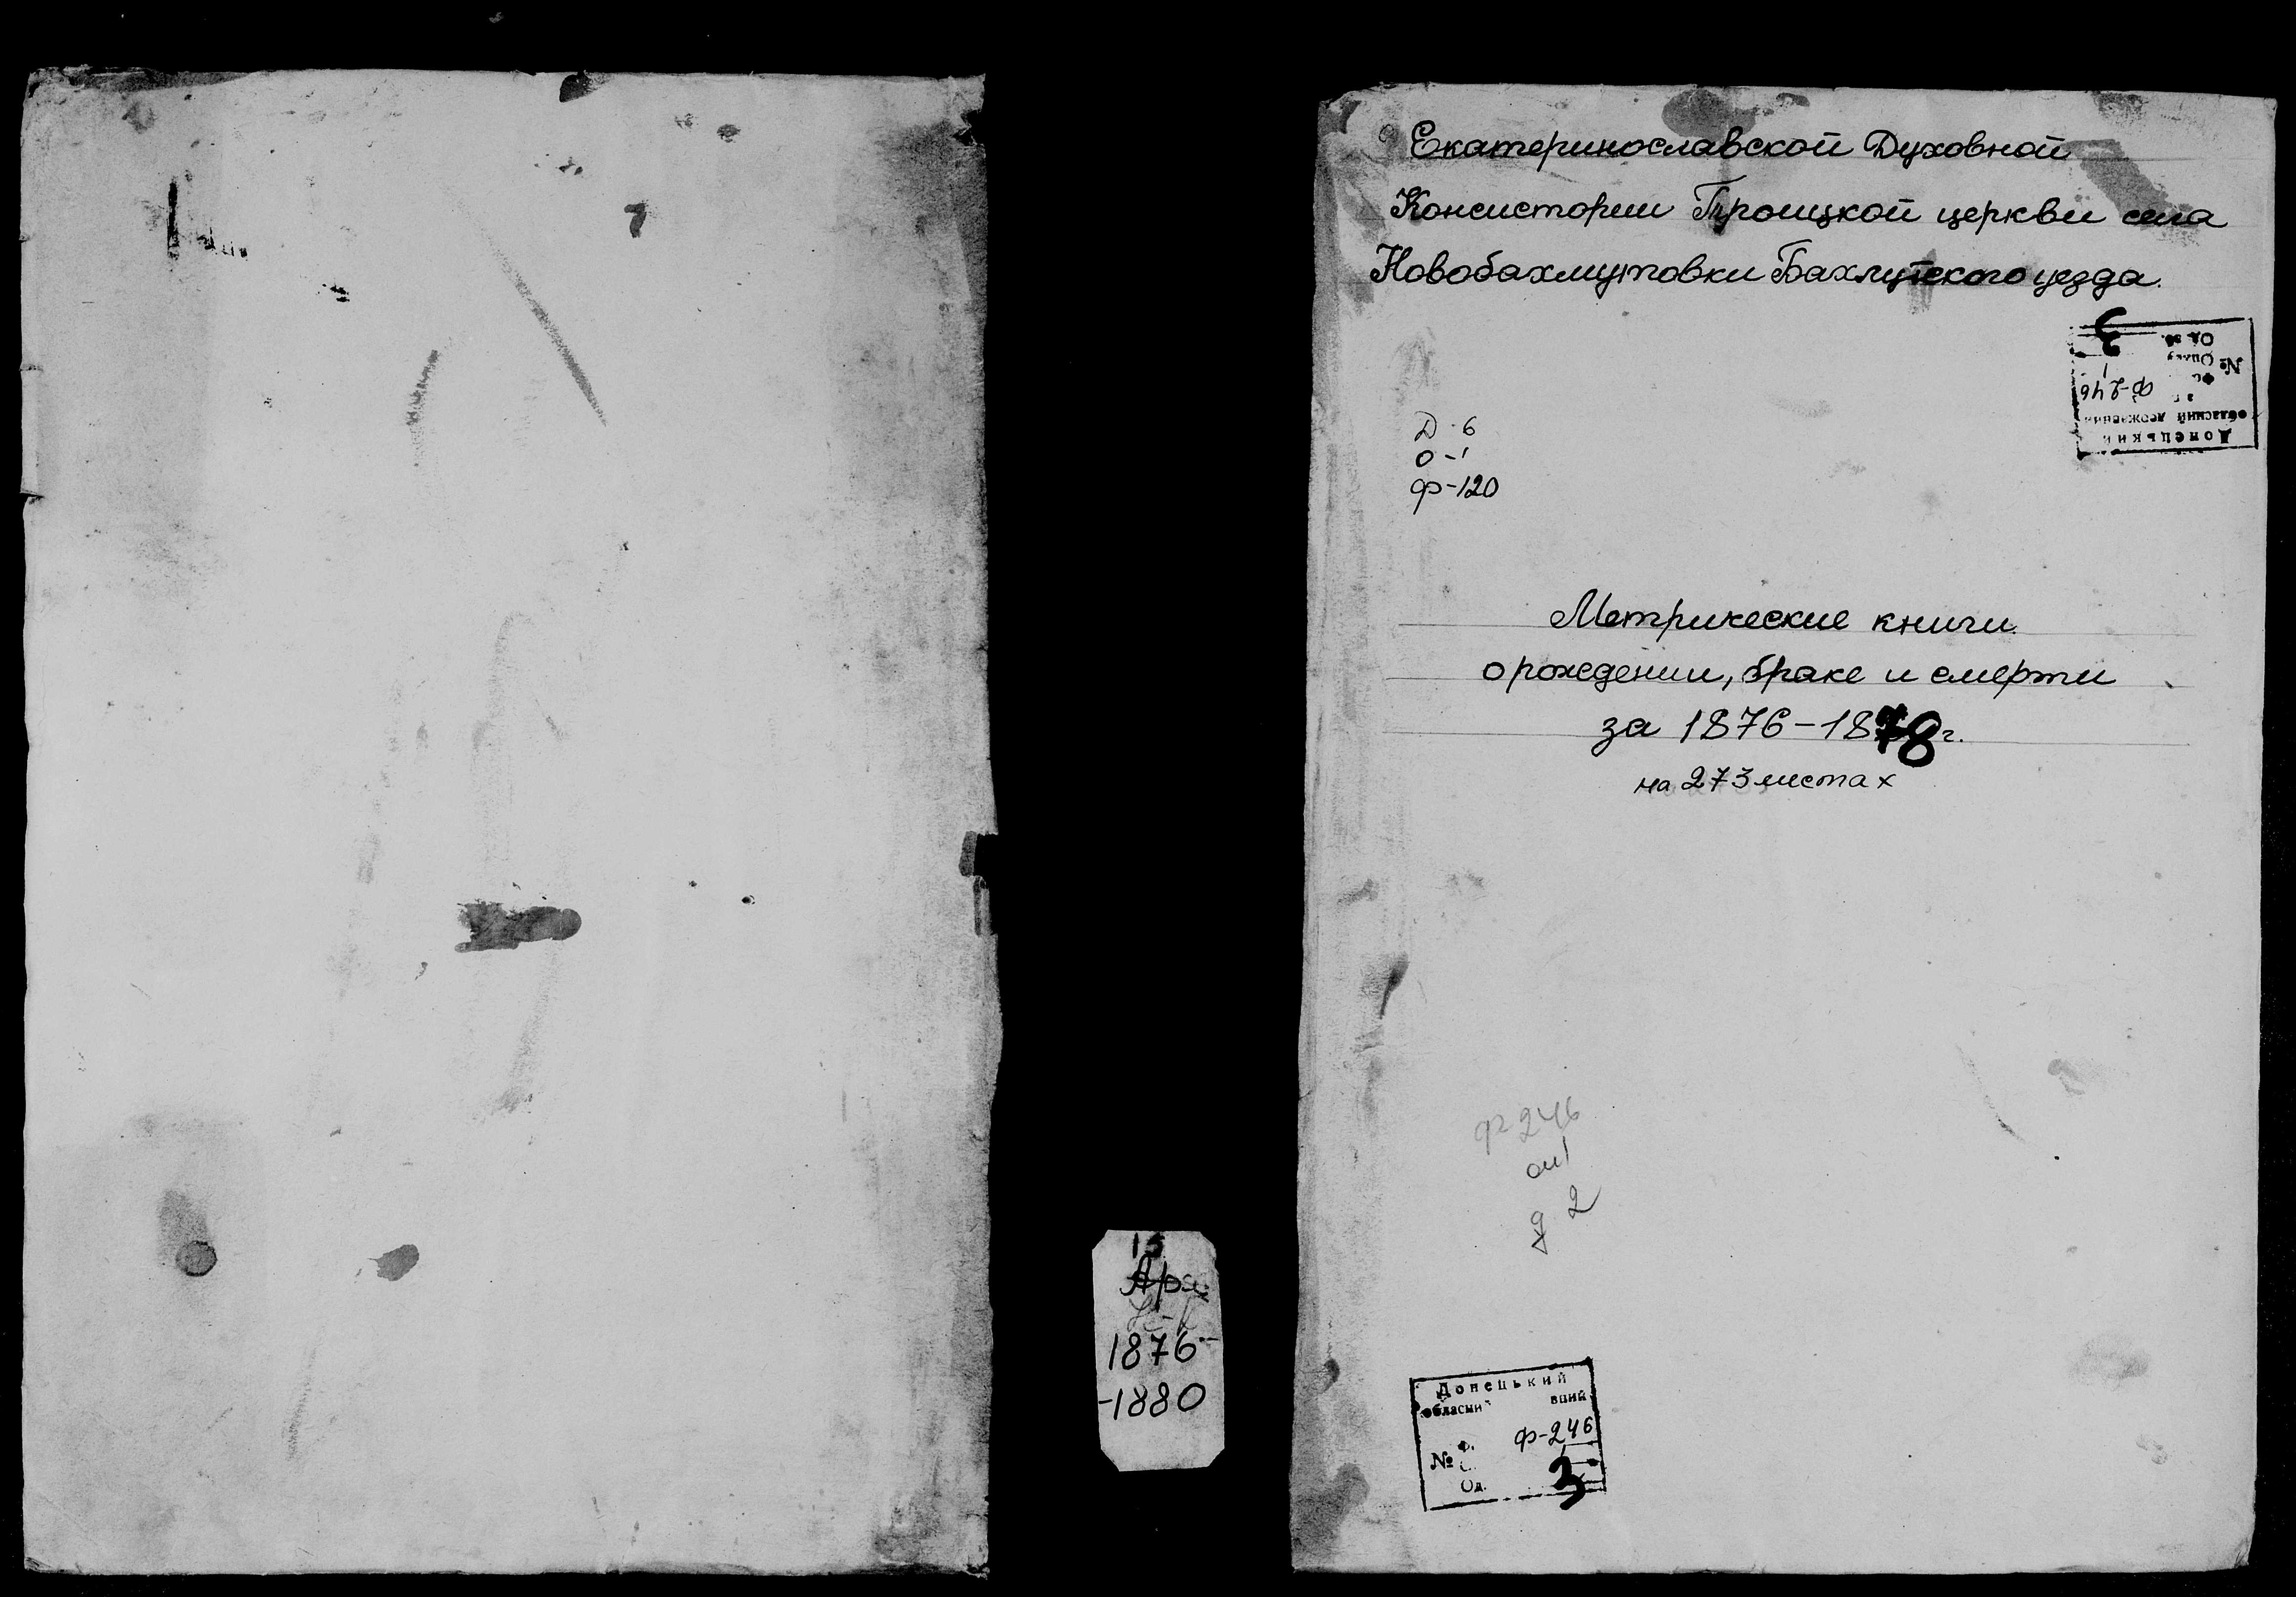 Екатеринославской Духовной
Консистории Троицкой церкви села
Новобахмутовки Бахмутского уезда.
Донецький
обласний державний
Ф-246
№ Опису 1
Од. зб. 3
Д-6
О-1
Ф-120
Метрические книги
о рождении, браке и смерти
за 1876-1878 г.
на 273 листах
ф 246
оп 1
д 2
15
1876-
-1880
Донецький
обласн вний
Ф-246
№ 1
Од. 3